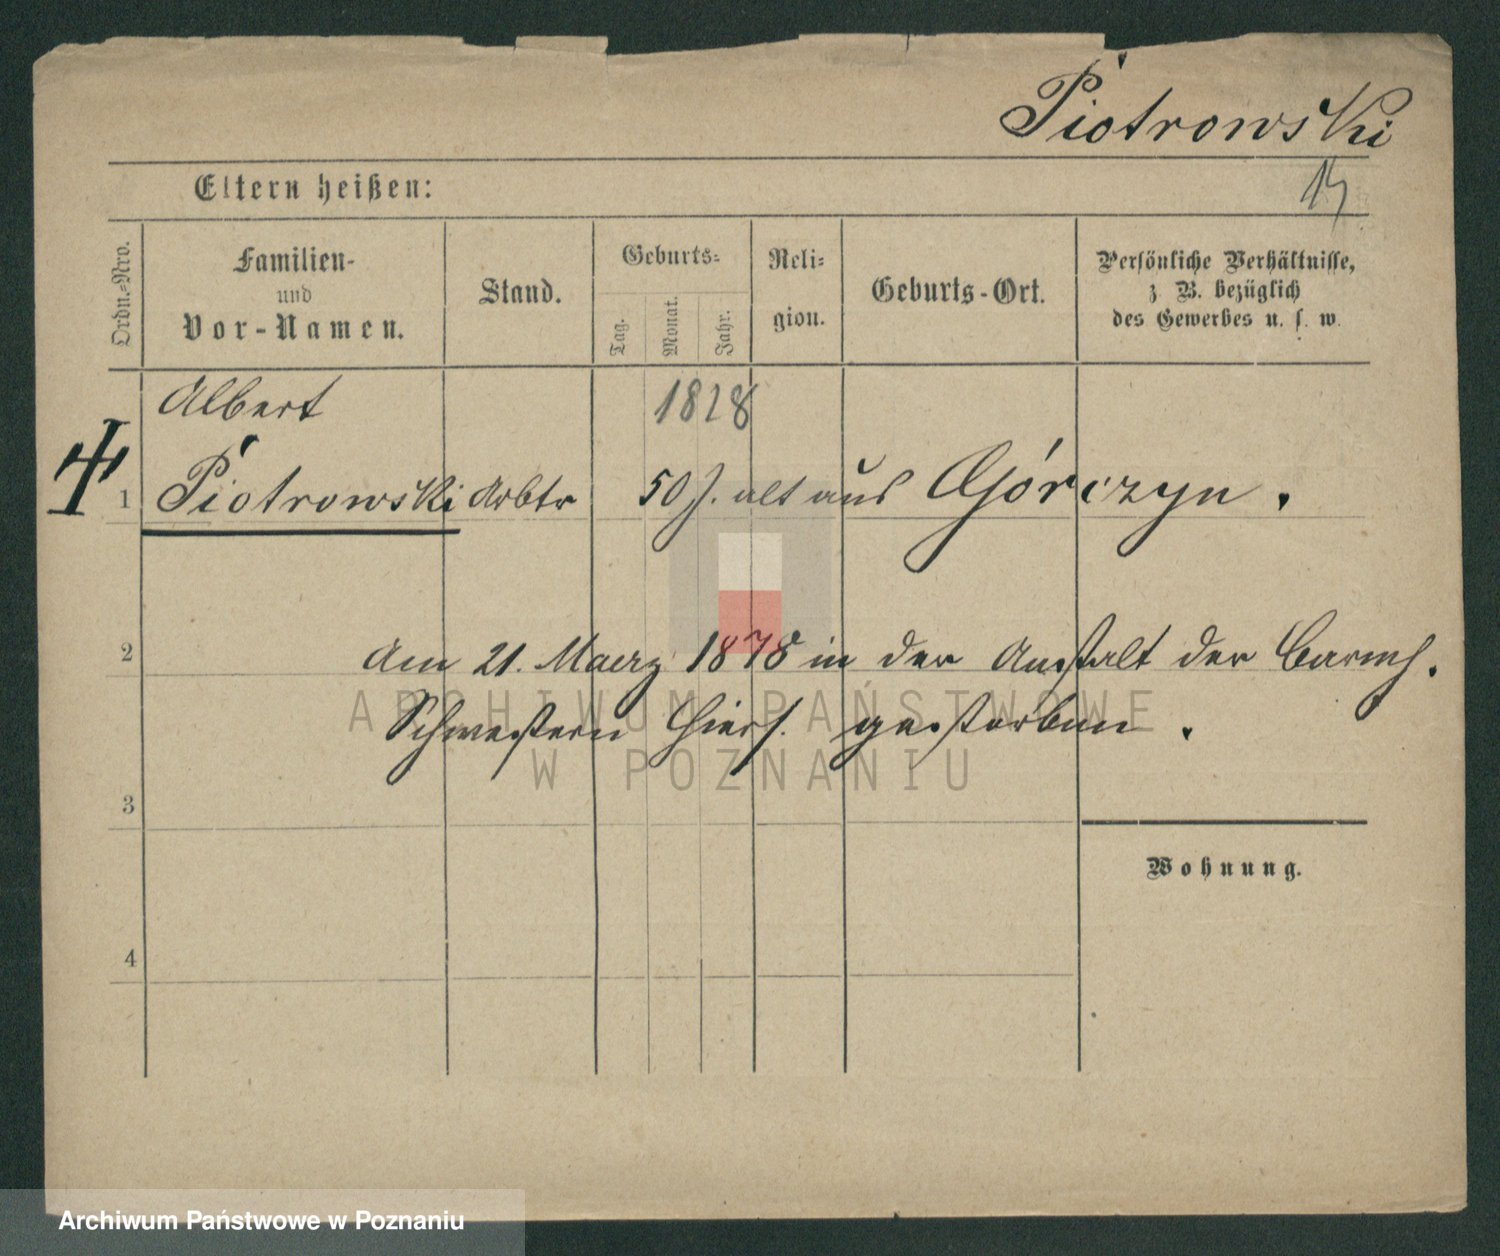 Piotrowski
Eltern heißen:
Ordn.-Nro.
Familien-
und
Vor-Namen.
Stand.
Geburts-
Tag.
Monat.
Jahr.
Reli-
gion.
Geburts-Ort.
Persönliche Verhältnisse,
z. B. bezüglich
des Gewerbes u. s. w.
Albert 1828
1 Piotrowski Arbtr 50 J. alt aus Górczyn.
2 Am 21. Maerz 1878 in der Anstalt der Barmh.
Schwestern hiers. gestorben.
ARCHIWUM PAŃSTWOWE
W POZNANIU
3
Wohnung.
4
Archiwum Państwowe w Poznaniu